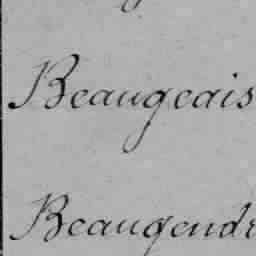 Beaugeais
Beaugendr